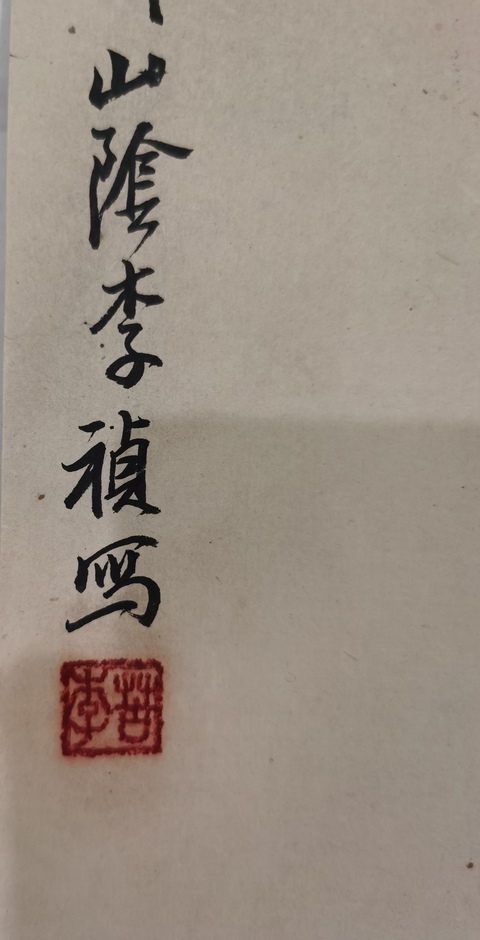 山陰李禎寫
李